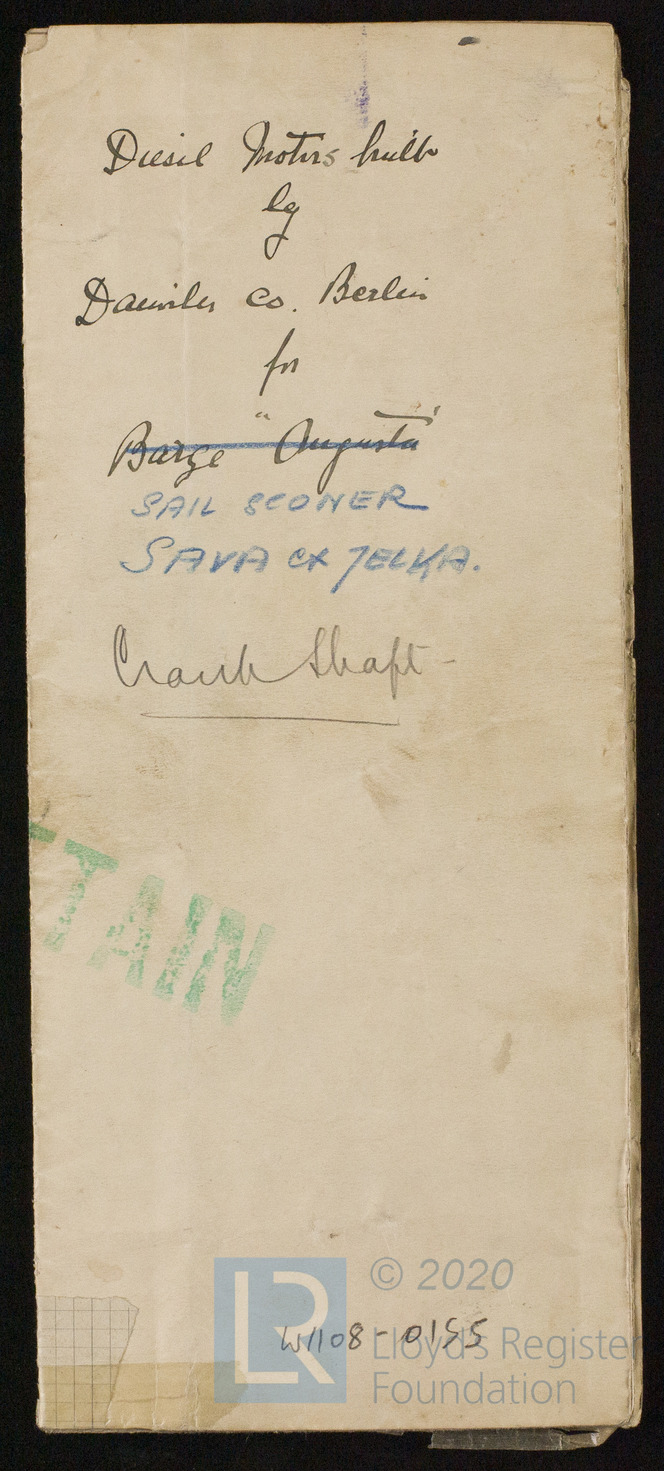 Diesel Motors built
by
Daimler Co. Berlin
for
Barge "Augusta"
SAIL SCONER
SAVA ex JELKA.
Crank Shaft -
TAIN
LR
© 2020
W1108-0155
Lloyd's Register
Foundation